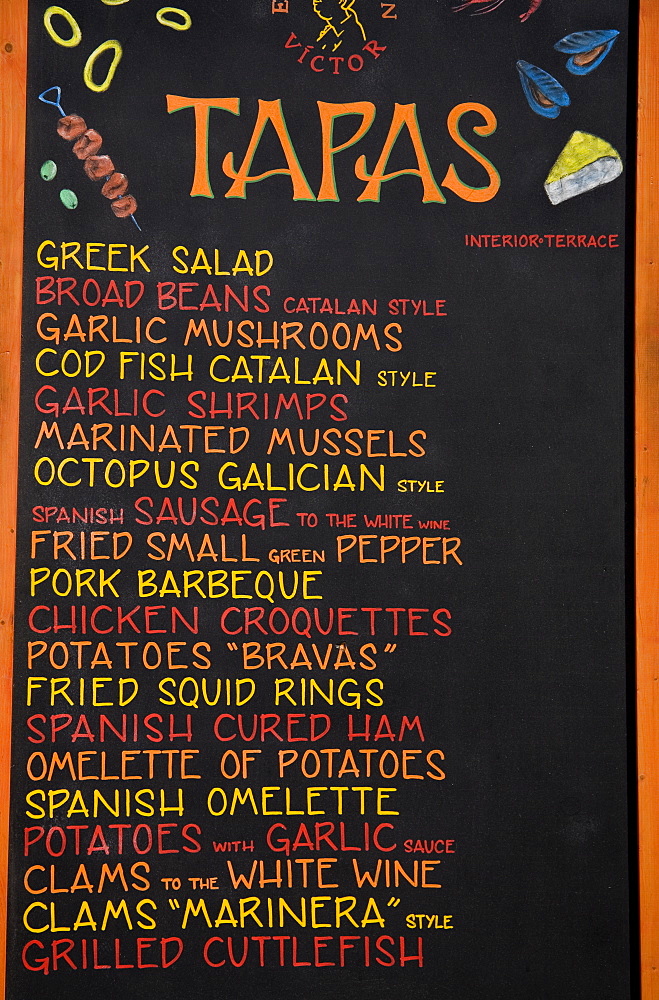 E N
VÍCTOR
TAPAS
INTERIOR·TERRACE
GREEK SALAD
BROAD BEANS CATALAN STYLE
GARLIC MUSHROOMS
COD FISH CATALAN STYLE
GARLIC SHRIMPS
MARINATED MUSSELS
OCTOPUS GALICIAN STYLE
SPANISH SAUSAGE TO THE WHITE WINE
FRIED SMALL GREEN PEPPER
PORK BARBEQUE
CHICKEN CROQUETTES
POTATOES “BRAVAS”
FRIED SQUID RINGS
SPANISH CURED HAM
OMELETTE OF POTATOES
SPANISH OMELETTE
POTATOES WITH GARLIC SAUCE
CLAMS TO THE WHITE WINE
CLAMS “MARINERA” STYLE
GRILLED CUTTLEFISH